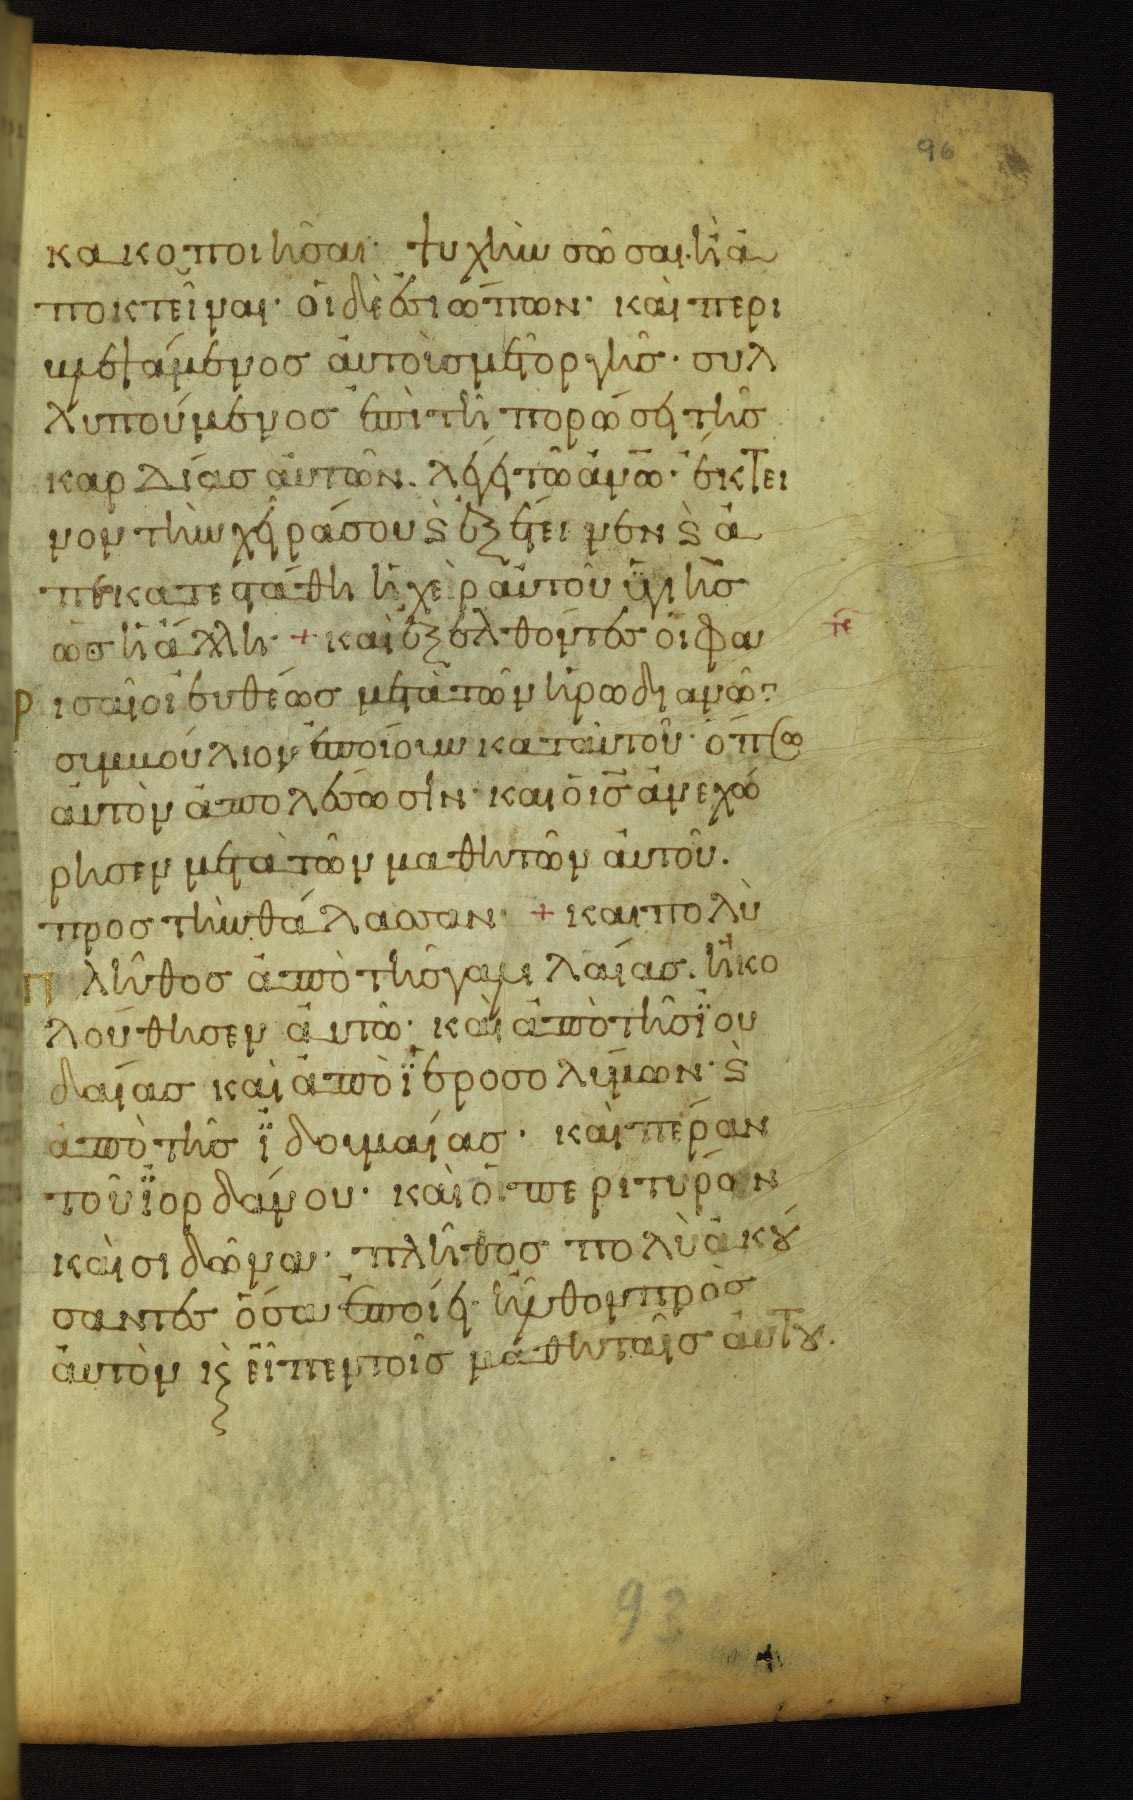 96
κακοποιῆσαι· ψυχὴν σῶσαι· ἢ ἀ
ποκτεῖναι· οἱ δὲ ἐσιώπων· καὶ περι
βλεψάμενος αὐτοὺς μετ' ὀργῆς· συλ
λυπούμενος ἐπὶ τῇ πορώσει τῆς
καρδίας αὐτῶν. λέγει τῶ ἀν̅ω̅· ἔκτει
νον τὴν χεῖρά σου ϗ ἐξέτεινεν ϗ ἀ
πεκατεστάθη ἡ χεὶρ αὐτοῦ ὑγιὴς
ὡς ἡ ἄλλη· + καὶ ἐξελθόντες οἱ φα
ρισαῖοι εὐθέως μετὰ τῶν ἡρωδιανῶν
συμβούλιον ἐποίουν κατ' αὐτοῦ· ὅπως
αὐτὸν ἀπολέσωσιν· καὶ ὁ ι̅ς̅ ἀνεχώ
ρησεν μετὰ τῶν μαθητῶν αὐτοῦ.
προς τὴν θάλασσαν· + και πολὺ
πλῆθος ἀπὸ τῆς γαλιλαίας. ἠκο
λούθησεν αὐτῶ· καὶ ἀπὸ τῆς ἰου
δαίας καὶ ἀπὸ ἱεροσολύμων· ϗ
ἀπὸ τῆς ἰδουμαίας· καὶ πέραν
τοῦ ἰορδάνου· καὶ οἱ περὶ τύρον
καὶ σιδῶνα· πλῆθος πολὺ ἀκού
σαντες ὅσα ἐποίει· ἦλθον πρὸς
αὐτὸν κϗ εἶπεν τοῖς μαθηταῖς αὐτοῦ.
93